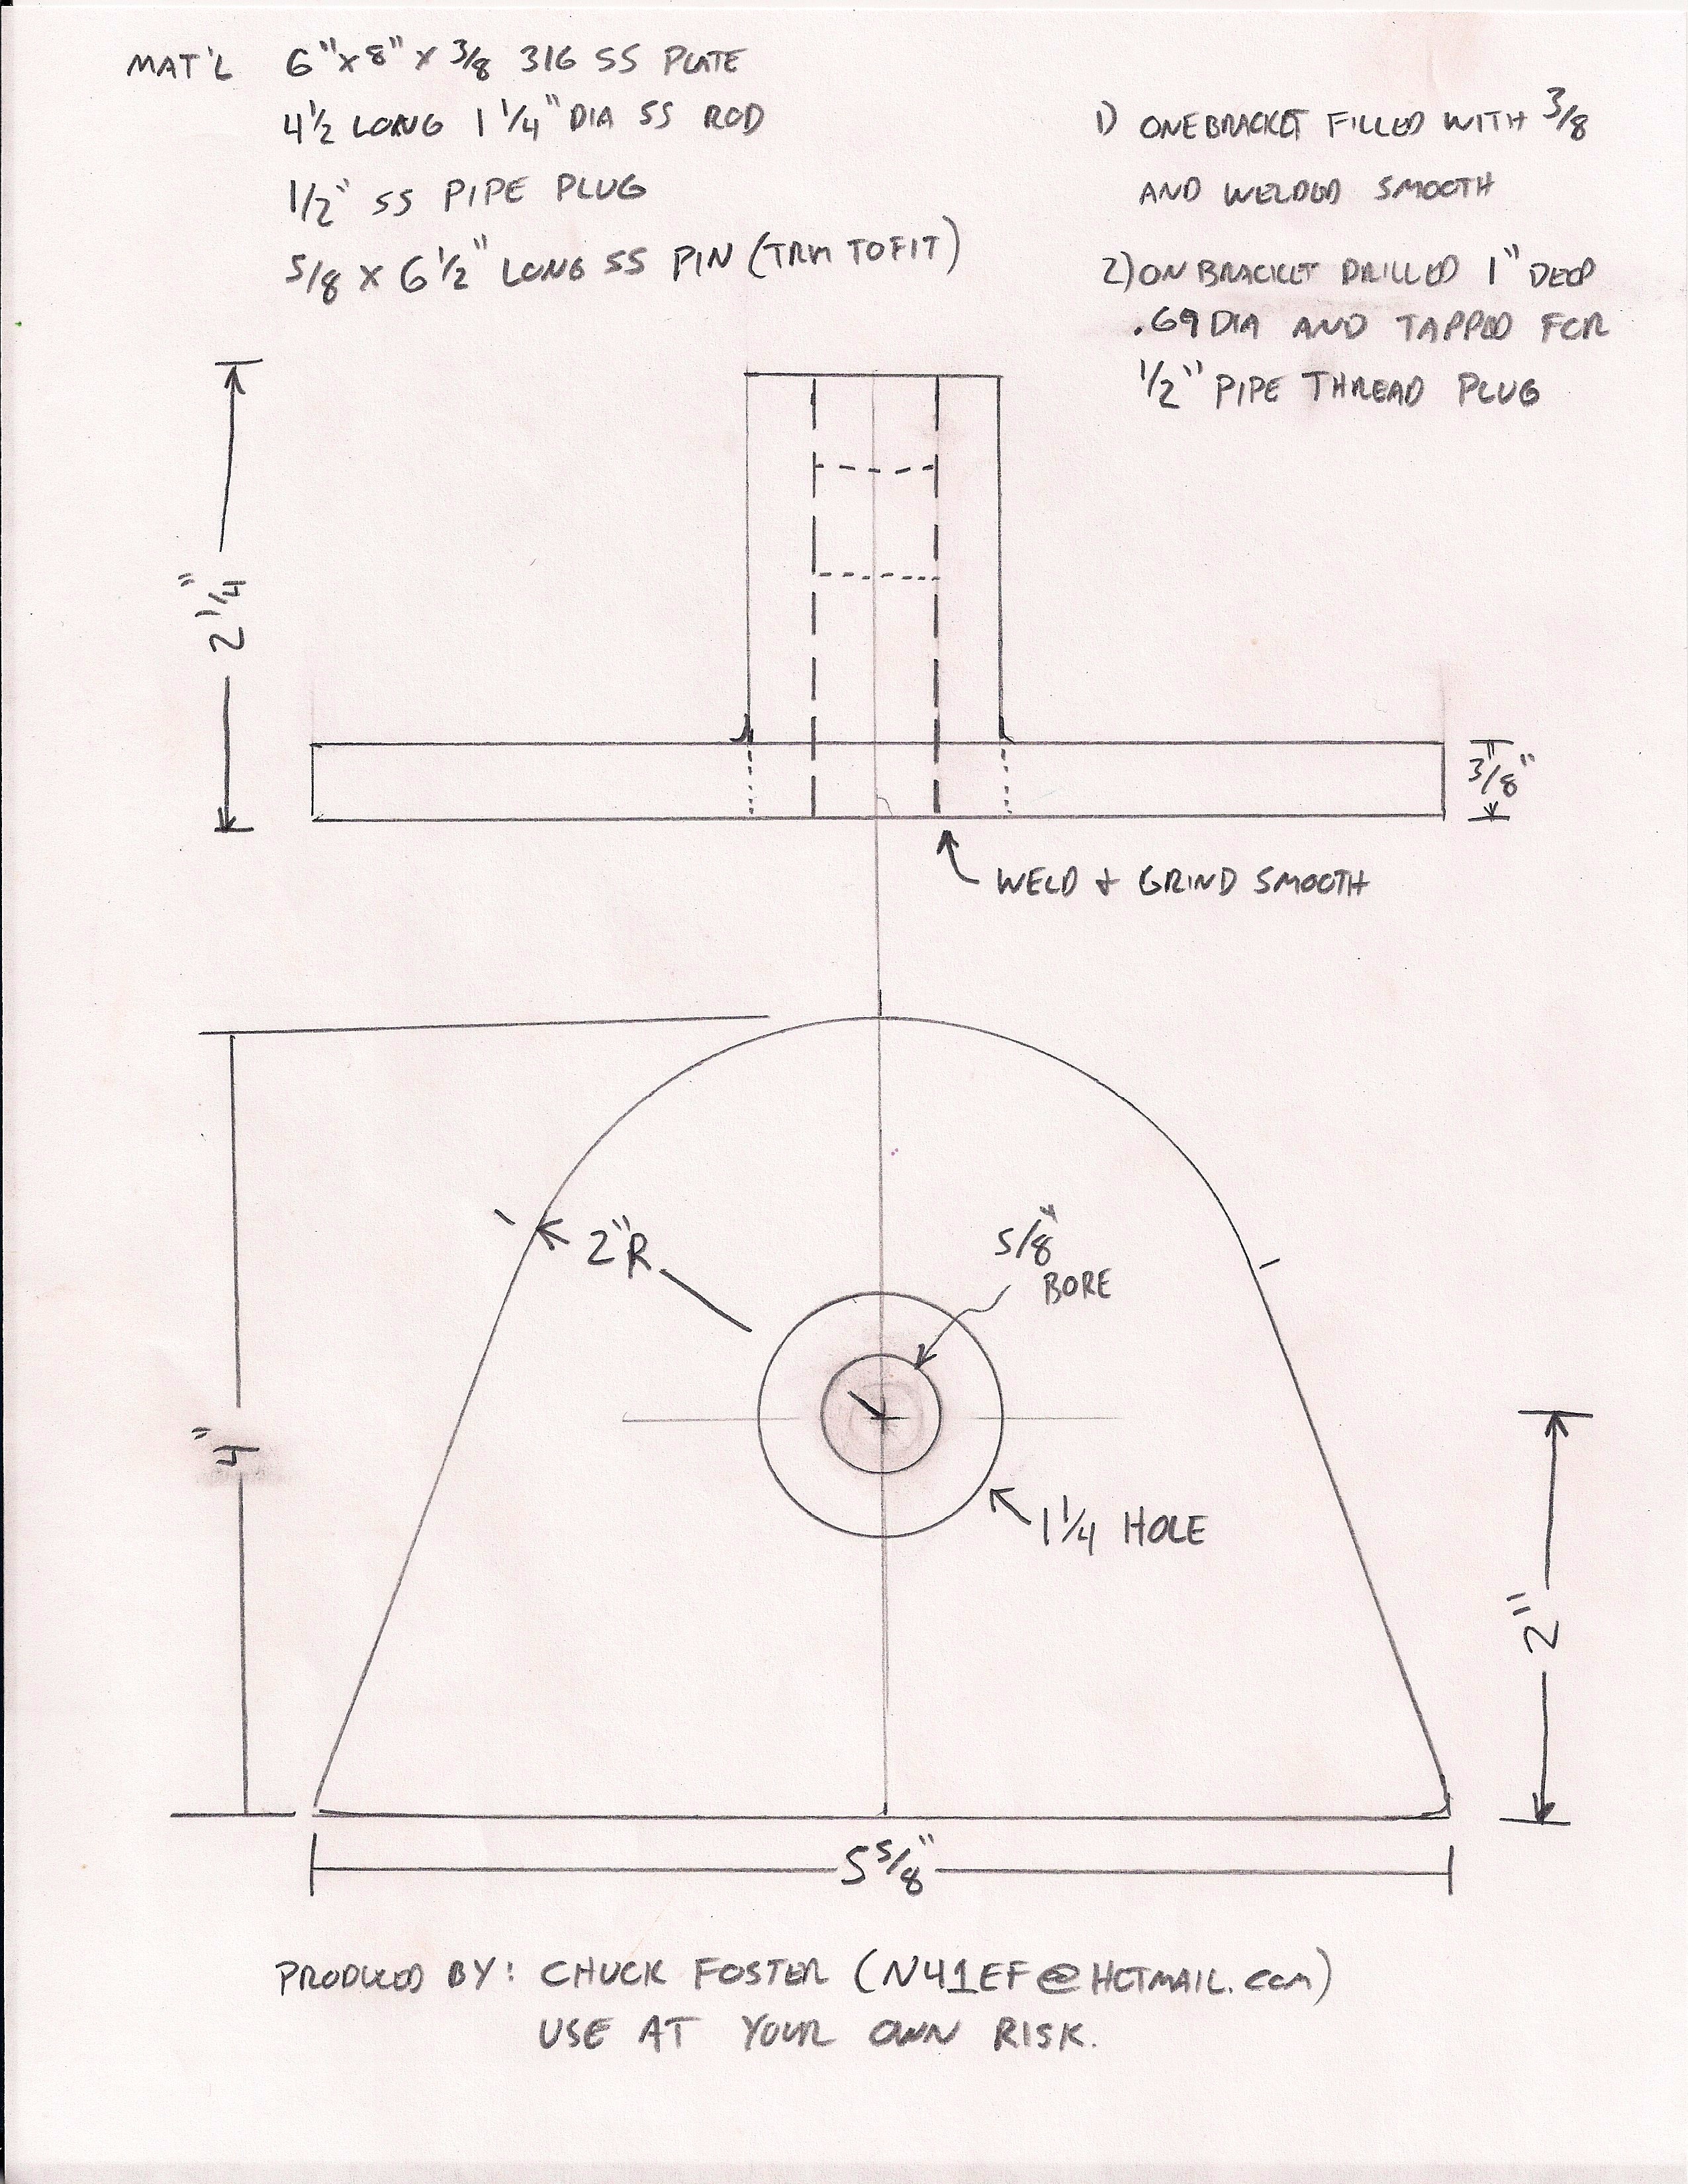 MAT'L 6"x8" x 3/8 316 SS PLATE
4 1/2 LONG 1 1/4" DIA SS ROD
1/2" SS PIPE PLUG
5/8 x 6 1/2" LONG SS PIN (TRIM TO FIT)
1) ONE BRACKET FILLED WITH 3/8
AND WELDED SMOOTH
2) ON BRACKET DRILLED 1" DEEP
.69 DIA AND TAPPED FOR
1/2" PIPE THREAD PLUG
2 1/4"
3/8"
WELD & GRIND SMOOTH
2"R
5/8"
BORE
4"
1 1/4 HOLE
2"
5 5/8"
PRODUCED BY: CHUCK FOSTER (N41EF@HOTMAIL.com)
USE AT YOUR OWN RISK.